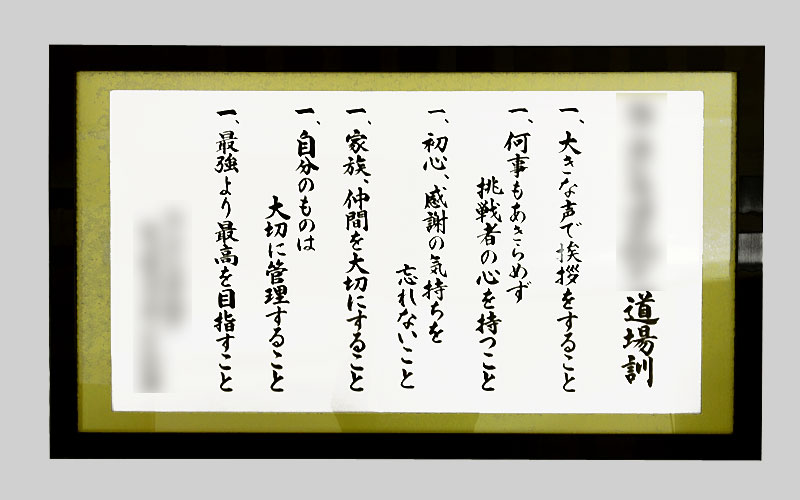 道場訓
一、大きな声で挨拶をすること
一、何事もあきらめず
挑戦者の心を持つこと
一、初心、感謝の気持ちを
忘れないこと
一、家族、仲間を大切にすること
一、自分のものは
大切に管理すること
一、最強より最高を目指すこと